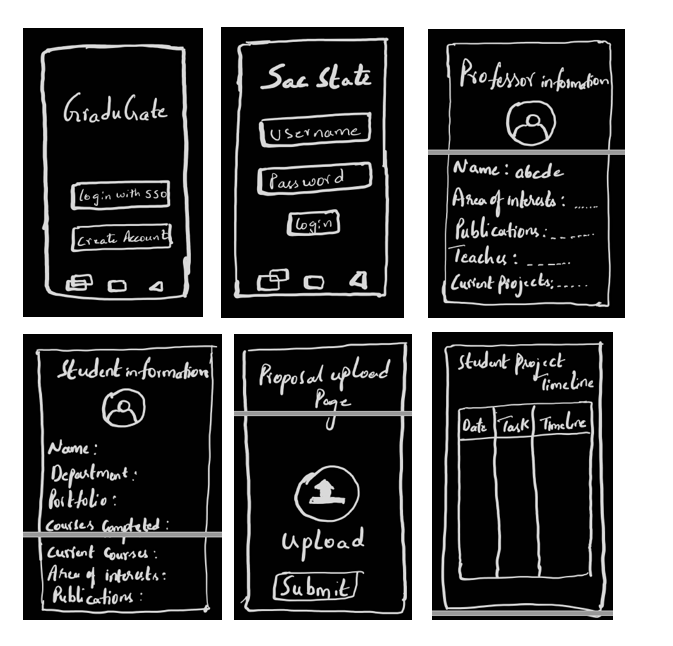 GraduGate
Login with SSO
Create Account
Sac State
Username
Password
Login
Professor information
Name: abcde
Area of interests: ......
Publications: ------
Teaches: ------
Current Projects: -----
Student information
Name:
Department:
Portfolio:
Courses Completed:
Current Courses:
Area of interests:
Publications:
Proposal upload
Page
Upload
Submit
Student Project
Timeline
Date Task Timeline